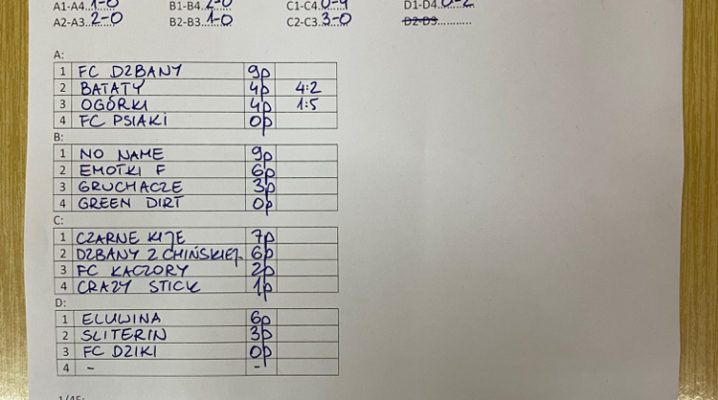 A1-A4..1-0 B1-B4..2-0 C1-C4.0-4 D1-D4.0-2
A2-A3..2-0 B2-B3..1-0 C2-C3..3-0 D2-D3
A:
1 FC DZBANY 9p
2 BATATY 4p 4:2
3 OGÓRKI 4p 1:5
4 FC PSIAKI 0p
B:
1 NO NAME 9p
2 EMOTKI F 6p
3 GRUCHACZE 3p
4 GREEN DIRT 0p
C:
1 CZARNE KIJE 7p
2 DZBANY Z CHIŃSKIEJ 6p
3 FC KACZORY 2p
4 CRAZY STICK 1p
D:
1 ELUWINA 6p
2 SLITERIN 3p
3 FC DZIKI 0p
4 - -